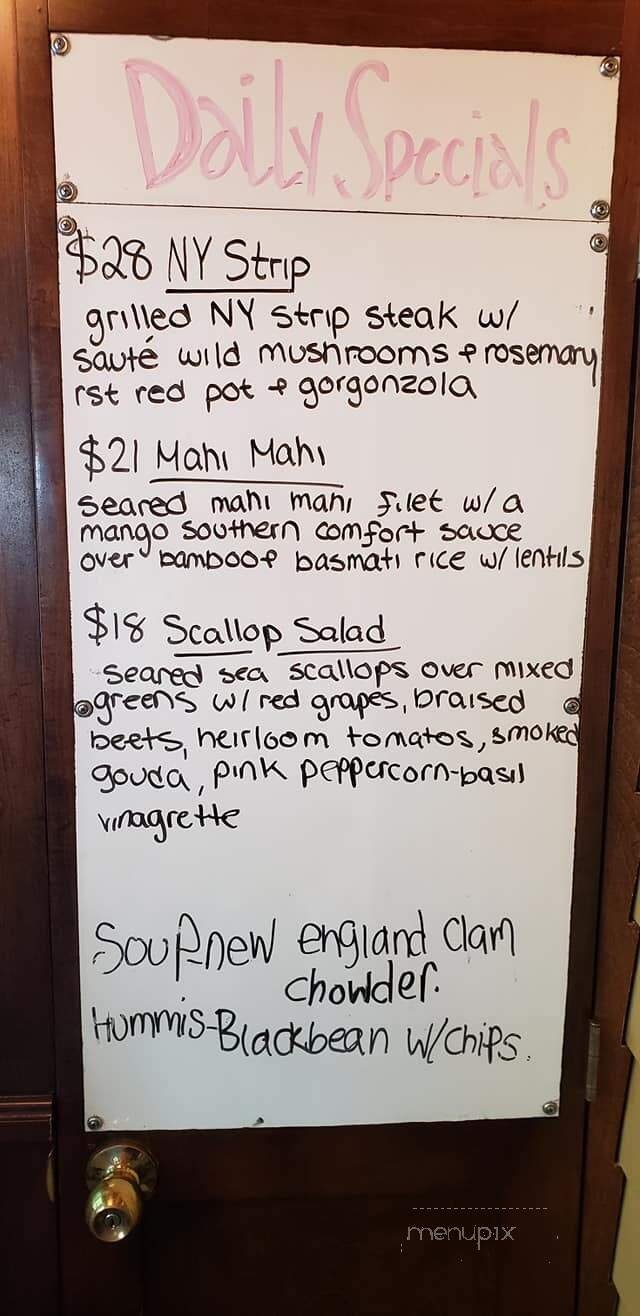 Daily Specials
$28 NY Strip
grilled NY strip steak w/
sauté wild mushrooms & rosemary
rst red pot & gorgonzola
$21 Mahi Mahi
seared mahi mahi filet w/ a
mango southern comfort sauce
over bamboo & basmati rice w/ lentils
$18 Scallop Salad
seared sea scallops over mixed
greens w/ red grapes, braised
beets, heirloom tomatos, smoked
gouda, pink peppercorn-basil
vinagrette
Soup-new england clam
chowder.
Hummis-Blackbean w/chips.
menupix